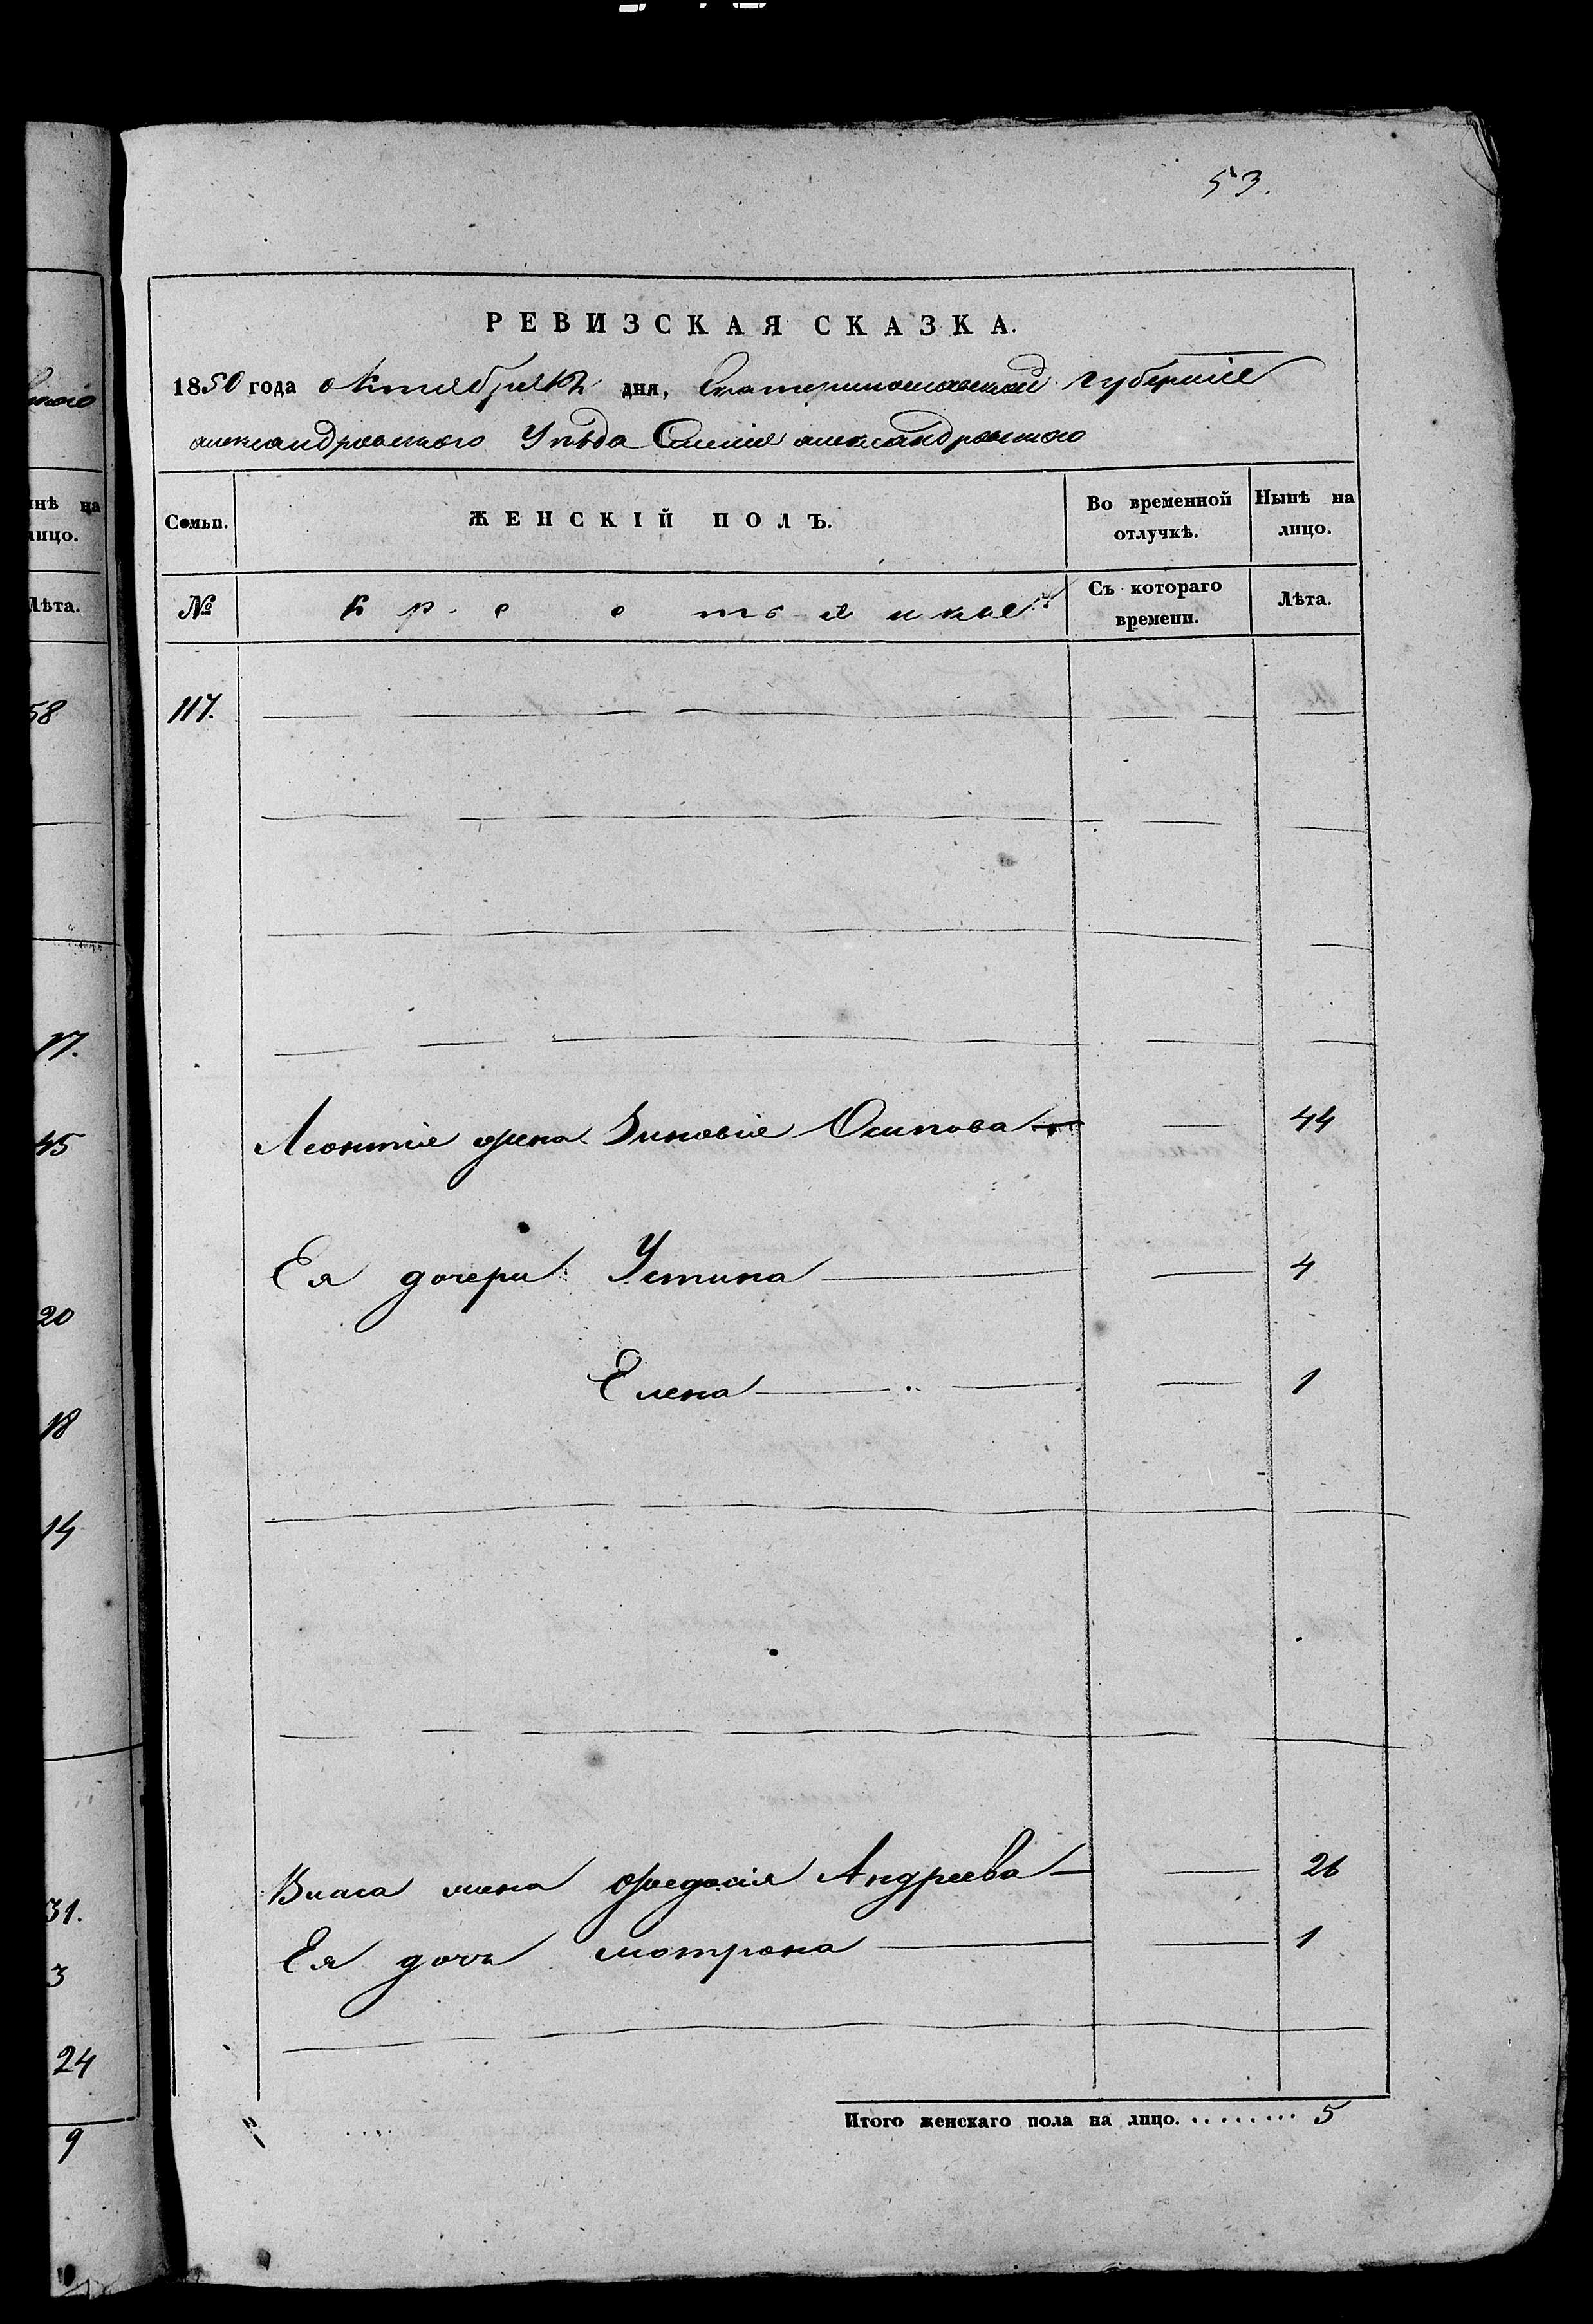 53.
РЕВИЗСКАЯ СКАЗКА.
1850 года октября 12 дня, Екатеринославской губернiи
александровского Уѣзда Селенiя александровского
Семьи. ЖЕНСКIЙ ПОЛЪ. Во временной отлучкѣ. Нынѣ на лицо.
№ крестьянъ Съ котораго времени. Лѣта.
117.
Леонтiя жена Зиновiя Осипова 44
Ея дочери Устина 4
Елена 1
Власа жена Федосiя Андреева 26
Ея дочь мотрона 1
Итого женскаго пола на лицо. 5
нѣ на
лицо.
Лѣта.
58
17.
45
20
18
14
31.
3
24
9